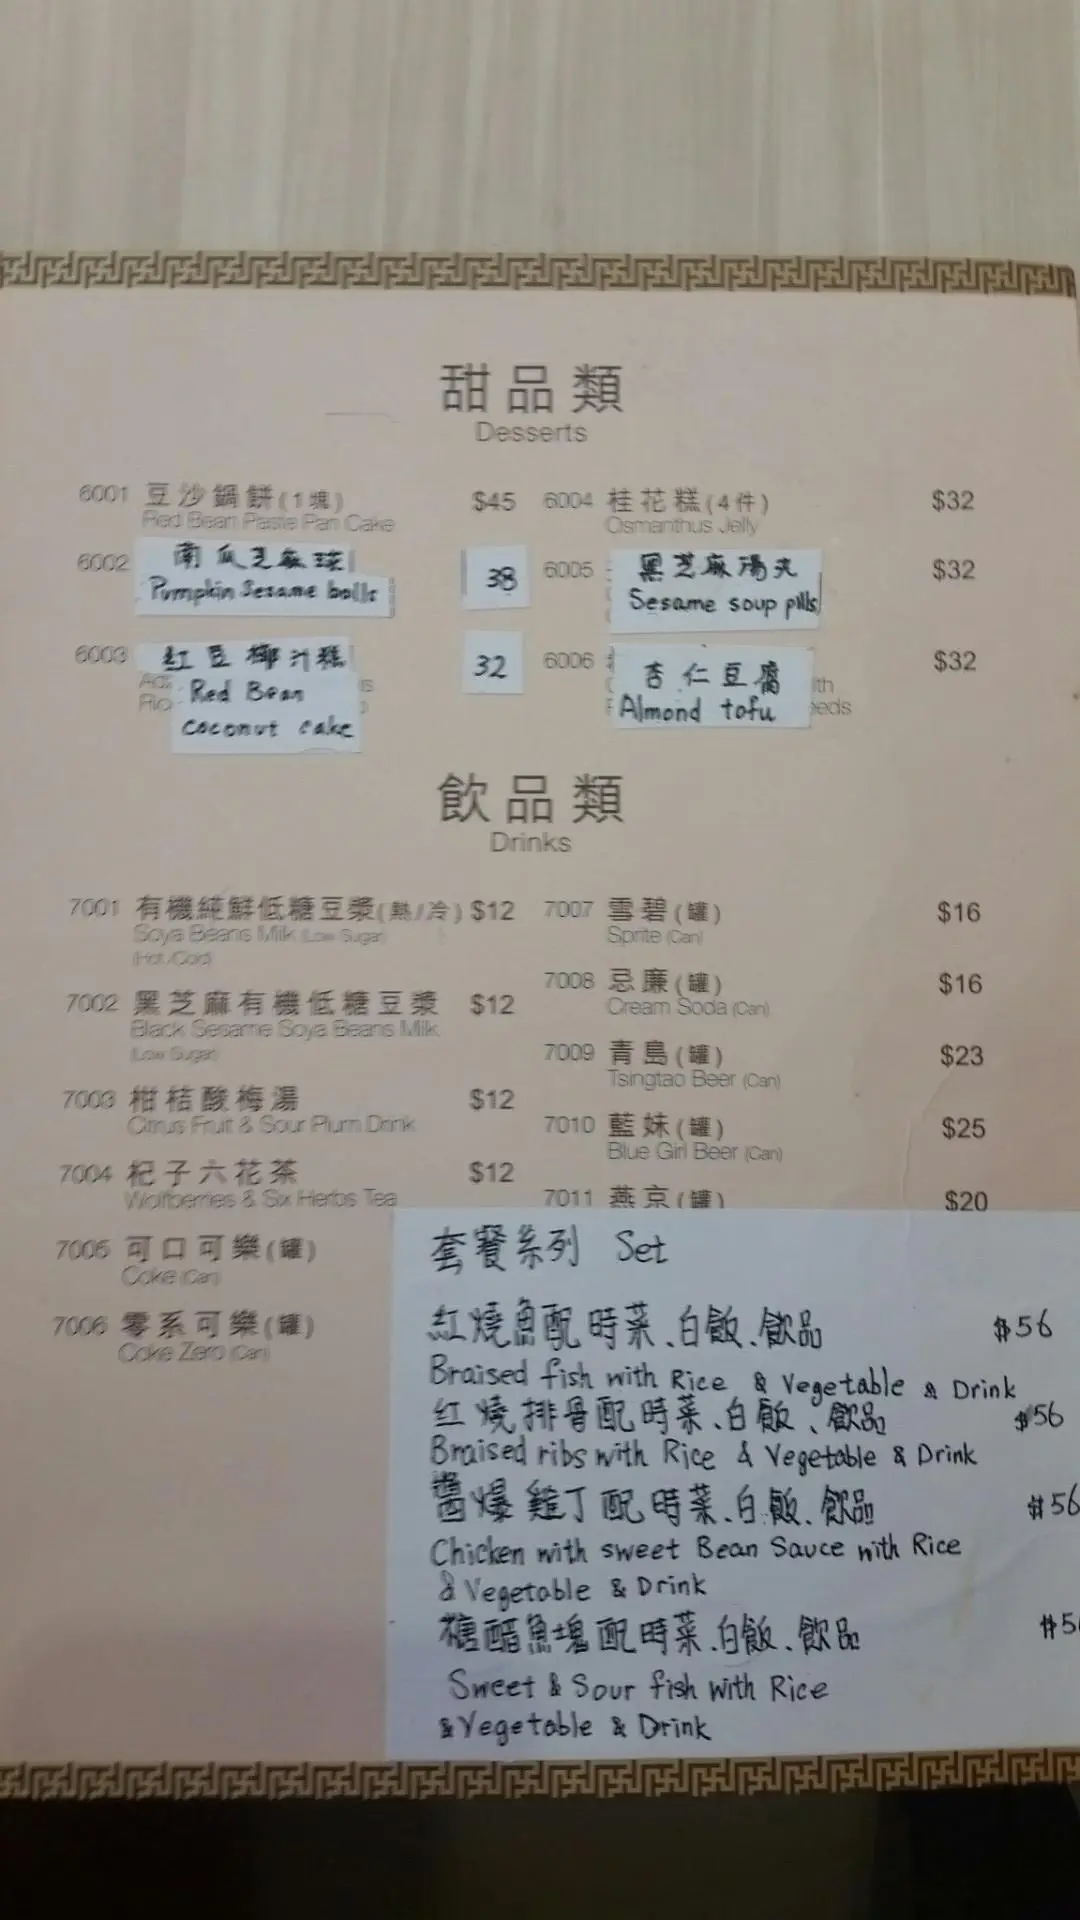 甜品類
Desserts
6001 豆沙鍋餅(1塊) $45
Red Bean Paste Pan Cake
6002 南瓜芝麻球 38
Pumpkin Sesame balls
6003 紅豆椰汁糕 32
Red Bean
coconut cake
6004 桂花糕(4件) $32
Osmanthus Jelly
6005 黑芝麻湯丸 $32
Sesame soup pills
6006 杏仁豆腐 $32
Almond tofu
飲品類
Drinks
7001 有機純鮮低糖豆漿(熱/冷) $12
Soya Beans Milk (Low Sugar)
(Hot /Cold)
7002 黑芝麻有機低糖豆漿 $12
Black Sesame Soya Beans Milk
(Low Sugar)
7003 柑桔酸梅湯 $12
Citrus Fruit & Sour Plum Drink
7004 杞子六花茶 $12
Wolfberries & Six Herbs Tea
7005 可口可樂(罐)
Coke (Can)
7006 零系可樂(罐)
Coke Zero (Can)
7007 雪碧(罐) $16
Sprite (Can)
7008 忌廉(罐) $16
Cream Soda (Can)
7009 青島(罐) $23
Tsingtao Beer (Can)
7010 藍妹(罐) $25
Blue Girl Beer (Can)
7011 燕京(罐) $20
套餐系列 Set
紅燒魚配時菜、白飯、飲品 $56
Braised fish with Rice & Vegetable & Drink
红燒排骨配時菜、白飯、飲品 $56
Braised ribs with Rice & Vegetable & Drink
醬爆雞丁配時菜、白飯、飲品 $56
Chicken with sweet Bean Sauce with Rice
& Vegetable & Drink
糖醋魚塊配時菜、白飯、飲品
Sweet & Sour fish with Rice
& Vegetable & Drink